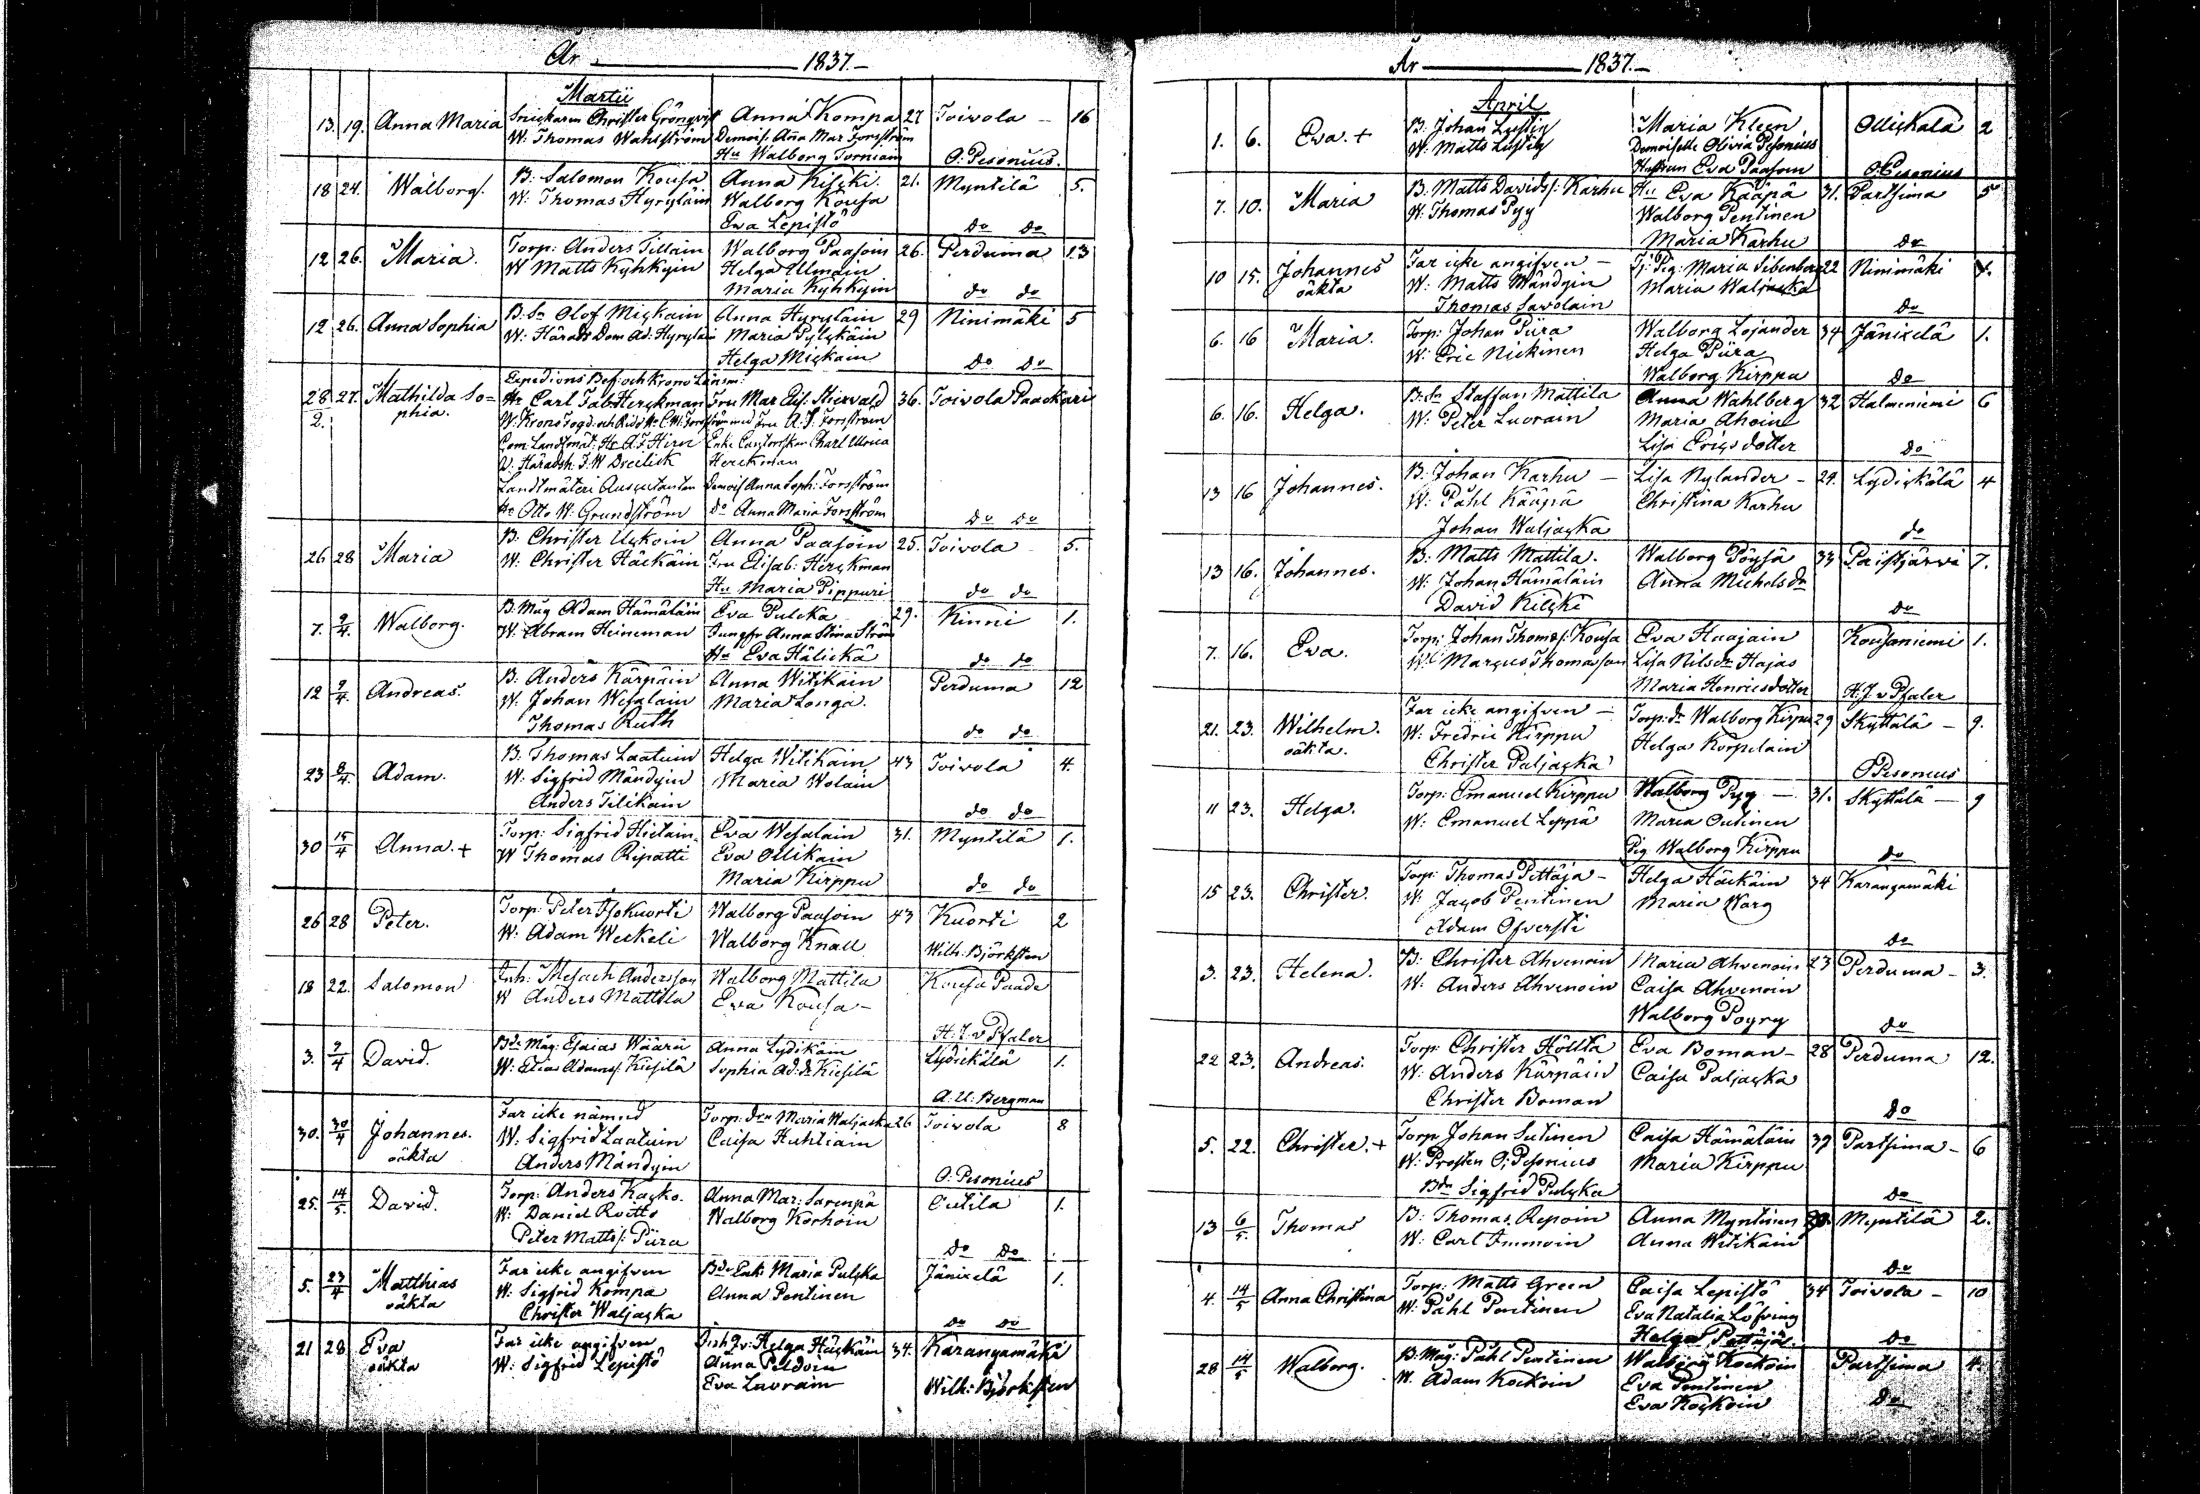 År 1837.
Martii
13. 19. Anna Maria Snickaren Christer Grönqvist Anna Kompa 27 Toivola 16
W. Thomas Wahlström Demois. Anna Mar Forsström
Hu Walborg Torniain O. Pesonius.
18 24. Walborg. B. Salomon Kousa Anna Kilcki. 21. Myntilä 5.
W. Thomas Hyryläin Walborg Kousa
Eva Lepistö do do
12 26. Maria. Torp: Anders Tillain Walborg Paasoin 26. Perduma 13
W Matts Kyhkyin Helga Ulmain
Maria Kyhkyin do do
12 26. Anna Sophia B. Sn Olof Mickain Anna Hyryläin 29 Ninimäki 5
W. Härads Dom Ad. Hyryläin Maria Pylckäin
Helga Mickain do do
Expeditions Bef: och Krono Länsm:
28/2. 27. Mathilda So= Hr Carl Fab Herckman Fru Mar Elis. Stiervald 36. Toivola Paackari
phia. W. Krono Fogd. och Ridd Hr C. W. Forsström med Fru A. S. Forsström
Com. Landtmät: Hr A. F. Hirn Enke Charl Ulrica
V. Häradsh. J. W Dreilick Herckman
Landtmäteri Auscultanten Demois Anna Soph: Forsström
Hr Otto W. Grundström do Anna Maria Forsström do do
26 28 Maria B. Christer Uckoin Anna Paasoin 25. Toivola 5.
W. Christer Häckäin Fru Elisab: Herckman
Hu Maria Pippuri do do
7. 9/4. Walborg. B. Måg Adam Hämäläin Eva Pulcka 29. Kinni 1.
W. Abram Heineman Jungfr Anna Stina Ström
Hu Eva Hälickä do do
12 9/4. Andreas. B. Anders Kärpäin Anna Witikäin Perduma 12
W. Johan Wesalain Maria Longa.
Thomas Ruth do do
23 8/4. Adam. B. Thomas Laatuin Helga Witikain 43 Toivola 4.
W. Sigfrid Mändyin Maria Wolain
Anders Tilikain do do
30 15/4 Anna. + Torp: Sigfrid Hietain Eva Wesalain 31. Myntilä 1.
W Thomas Ripatti Eva Ollikain
Maria Kirppu do do
26 28 Peter. Torp: Peter Isokuorti Walborg Paasoin 43 Kuorti 2
W. Adam Weckeli Walborg Knall Wilh. Björksten
18 22. Salomon Inh: Mesach Andersson Walborg Mattila Kousa Paada
W Anders Mattila Eva Kousa H. J. v Pfaler
3. 2/4 David. Bdn Måg: Esaias Wäärii Anna Lydikäin Lydickälä 1.
W. Elias Adamss: Kiesilä Sophia Ad. dr Kiesilä A. U. Bergman
30. 30/4 Johannes. Far icke nämnd Torp: drn Maria Waljacka 26 Toivola 8
oäkta W. Sigfrid Laatuin Caisa Huhtiain
Anders Mändyin O. Pesonius
25. 14/5. David. Torp: Anders Kacko. Anna Mar: Sarenpä Outila 1.
W: Daniel Roitto Walborg Korhoin
Peter Matts: Piira do do
5. 23/4 Matthias Far icke angifven Bdr Enk: Maria Pulcka Jänickelä 1.
oäkta W. Sigfrid Kompa Anna Pentinen
Christer Waljacka do do
21 28 Eva Far icke angifven Helga Häckäin 34. Karangamäki
oäkta W: Sigfrid Lepistö Anna Peldoin
Eva Lavrain Wilh: Björksten
År 1837.
April
1. 6. Eva. + B. Johan Lustig Maria Kleen Ollickala 2
W. Matts Lustig Demoiselle Olivia Pesonius
Hustrun Eva Paasoin O. Pesonius
7. 10. Maria B. Matts Davids: Karhu Hu Eva Kääpä 31. Partsima 5
W. Thomas Pyy Walborg Pentinen
Maria Karhu do
10 15. Johannes Far icke angifven Tj. Pig: Maria Sibenberg 22 Ninimäki 1.
oäkta W. Matts Mändyin Maria Waljacka
Thomas Savolain do
6. 16 Maria. Torp: Johan Piira Walborg Lojander 34 Jänickelä 1.
W. Eric Nickinen Helga Piira
Walborg Kirppu do
6. 16. Helga. B. Sn Staffan Mattila Anna Wahlberg 32 Halmeniemi 6
W. Peter Luorain Maria Ahoin
Lisa Erics dotter do
13 16 Johannes. B. Johan Karhu Lisa Nylander 29. Lydickälä 4
W. Påhl Kääpä Christina Karhu
Johan Waljacka do
13 16. Johannes. B. Matts Mattila. Walborg Pöysä 33 Paistjärvi 7.
W. Johan Hämäläin Anna Michels dr
David Kilcki do
7. 16. Eva. Torp: Johan Thomas: Kousa Eva Haajain Kousaniemi 1.
W. Marcus Thomasson Lisa Nils dr Hajas
Maria Henricsdotter H. J. v Pfaler
21. 23. Wilhelm. Far icke angifven Torp: dr Walborg Kirpu 29 Skyttälä 9.
oäkta. W. Fredric Kirppu Helga Korpelain
Christer Paljacka O Pesonius
11 23. Helga. Torp: Emanuel Kirppu Walborg Pyy 31. Skyttälä 9
W: Emanuel Leppä Maria Outinen
Pig Walborg Kirppu do
15 23. Christer. Torp: Thomas Pettäjä Helga Häckäin 34 Karangamäki
W. Jacob Pentinen Maria Warg
Adam Öfversti do
3. 23. Helena. B: Christer Ahvenoin Maria Ahvenoin 23 Perduma 3.
W. Anders Ahvenoin Caisa Ahvenoin
Walborg Poyry do
22 23. Andreas. Torp: Christer Höltta Eva Boman 28 Perduma 12.
W. Anders Kärpäin Caisa Paljacka
Christer Boman do
5. 22. Christer. + Torp Johan Sutinen Caisa Hämäläin 39 Partsima 6
W. Prosten O. Pesonius Maria Kirppu
Bdn Sigfrid Pulcka do
13 6/5. Thomas B. Thomas Repoin Anna Myntinen Myntilä 2.
W. Carl Immoin Anna Witikain do
4. 14/5 Anna Christina Torp: Matts Green Caisa Lepistö 34 Toivola 10
W. Påhl Pentinen Eva Natalia Löfving
Helga Pettäjä. do
28 14/5 Walborg. B. Måg. Påhl Pentinen Walborg Kockoin Partsima 4.
W. Adam Kockoin Eva Pentinen
Eva Kockoin do